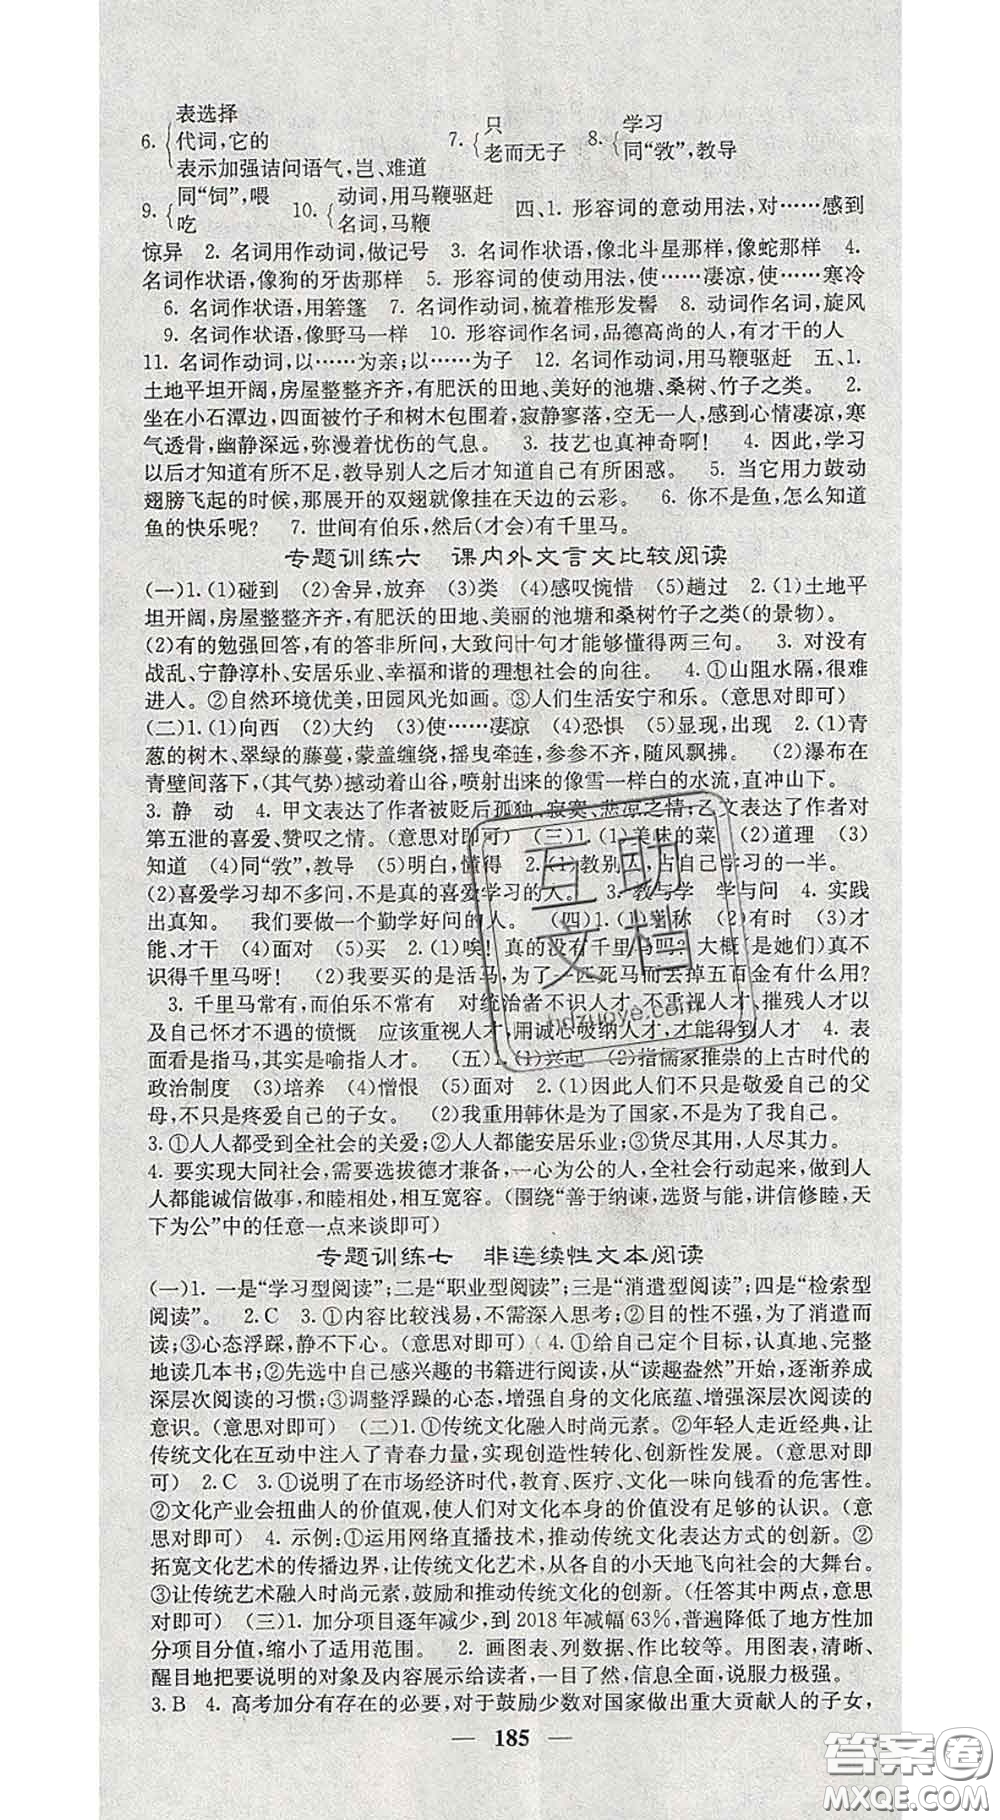 表选择
6. 代词,它的
表示加强诘问语气,岂、难道
7. 只
老而无子
8. 学习
同“敩”,教导
9. 同“饲”,喂
吃
10. 动词,用马鞭驱赶
名词,马鞭
四、1. 形容词的意动用法,对……感到
惊异 2. 名词用作动词,做记号 3. 名词作状语,像北斗星那样,像蛇那样 4.
名词作状语,像狗的牙齿那样 5. 形容词的使动用法,使……凄凉,使……寒冷
6. 名词作状语,用箬篷 7. 名词作动词,梳着椎形发髻 8. 动词作名词,旋风
9. 名词作状语,像野马一样 10. 形容词作名词,品德高尚的人,有才干的人
11. 名词作动词,以……为亲;以……为子 12. 名词作动词,用马鞭驱赶 五、1.
土地平坦开阔,房屋整整齐齐,有肥沃的田地、美好的池塘、桑树、竹子之类。 2.
坐在小石潭边,四面被竹子和树木包围着,寂静寥落,空无一人,感到心情凄凉,寒
气透骨,幽静深远,弥漫着忧伤的气息。 3. 技艺也真神奇啊! 4. 因此,学习
以后才知道有所不足,教导别人之后才知道自己有所困惑。 5. 当它用力鼓动
翅膀飞起的时候,那展开的双翅就像挂在天边的云彩。 6. 你不是鱼,怎么知道
鱼的快乐呢? 7. 世间有伯乐,然后(才会)有千里马。
专题训练六 课内外文言文比较阅读
(一)1.(1)碰到 (2)舍弃,放弃 (3)类 (4)感叹惋惜 (5)趟过 2.(1)土地平
坦开阔,房屋整整齐齐,有肥沃的田地、美丽的池塘和桑树竹子之类(的景物)。
(2)有的勉强回答,有的答非所问,大致问十句才能够懂得两三句。 3. 对没有
战乱、宁静淳朴、安居乐业、幸福和谐的理想社会的向往。 4.①山阻水隔,很难
进人。②自然环境优美,田园风光如画。③人们生活安宁和乐。(意思对即可)
(二)1.(1)向西 (2)大约 (3)使……凄凉 (4)恐惧 (5)显现,出现 2.(1)青
葱的树木、翠绿的藤蔓,蒙盖缠绕,摇曳牵连,参参不齐,随风飘拂。 (2)瀑布在
青壁间落下,(其气势)撼动着山谷,喷射出来的像雪一样白的水流,直冲山下。
3. 静 动 4. 甲文表达了作者被贬后孤独、寂寞、悲凉之情;乙文表达了作者对
第五泄的喜爱、赞叹之情。(意思对即可) (三)1.(1)美味的菜 (2)道理 (3)
知道 (4)同“敩”,教导 (5)明白,懂得 2.(1)教别人,占自己学习的一半。
(2)喜爱学习却不多问,不是真的喜爱学习的人。 3. 教与学 学与问 4. 实践
出真知。 我们要做一个勤学好问的人。 (四)1.(1)著称 (2)有时 (3)才
能、才干 (4)面对 (5)买 2.(1)唉!真的没有千里马吗?大概(是她们)真不
识得千里马呀! (2)我要买的是活马,为了一匹死马而丢掉五百金有什么用?
3. 千里马常有,而伯乐不常有 对统治者不识人才、不重视人才、摧残人才以
及自己怀才不遇的愤慨 应该重视人才,用诚心吸纳人才,才能得到人才 4. 表
面看是指马,其实是喻指人才。 (五)1.(1)兴起 (2)指儒家推崇的上古时代的
政治制度 (3)培养 (4)憎恨 (5)面对 2.(1)因此人们不只是敬爱自己的父
母,不只是疼爱自己的子女。 (2)我重用韩休是为了国家,不是为了我自己。
3.①人人都受到全社会的关爱;②人人都能安居乐业;③货尽其用,人尽其力。
4. 要实现大同社会,需要选拔德才兼备,一心为公的人,全社会行动起来,做到人
人都能诚信做事,和睦相处,相互宽容。(围绕“善于纳谏,选贤与能,讲信修睦,天
下为公”中的任意一点来谈即可)
专题训练七 非连续性文本阅读
(一)1. 一是“学习型阅读”;二是“职业型阅读”;三是“消遣型阅读”;四是“检索型
阅读”。 2.C 3.①内容比较浅易,不需深入思考;②目的性不强,为了消遣而
读;③心态浮躁,静不下心。(意思对即可) 4.①给自己定个目标,认真地、完整
地读几本书;②先选中自己感兴趣的书籍进行阅读,从“读趣盎然”开始,逐渐养成
深层次阅读的习惯;③调整浮躁的心态,增强自身的文化底蕴、增强深层次阅读的
意识。(意思对即可) (二)1.①传统文化融人时尚元素。②年轻人走近经典,让
传统文化在互动中注入了青春力量,实现创造性转化、创新性发展。(意思对即
可) 2.C 3.①说明了在市场经济时代,教育、医疗、文化一味向钱看的危害性。
②文化产业会扭曲人的价值观,使人们对文化本身的价值没有足够的认识。(意
思对即可) 4. 示例:①运用网络直播技术,推动传统文化表达方式的创新。②
拓宽文化艺术的传播边界,让传统文化艺术,从各自的小天地飞向社会的大舞台。
③让传统艺术融人时尚元素,鼓励和推动传统文化的创新。(任答其中两点,意思
对即可) (三)1. 加分项目逐年减少,到2018年减幅63%,普遍降低了地方性加
分项目分值,缩小了适用范围。 2. 画图表、列数据、作比较等。用图表,清晰、
醒目地把要说明的对象及内容展示给读者,一目了然,信息全面,说服力极强。
3.B 4. 高考加分有存在的必要,对于鼓励少数对国家做出重大贡献人的子女,
— 185 —
互助
文档
hdzuoye.com
答案圈
MXQE.COM